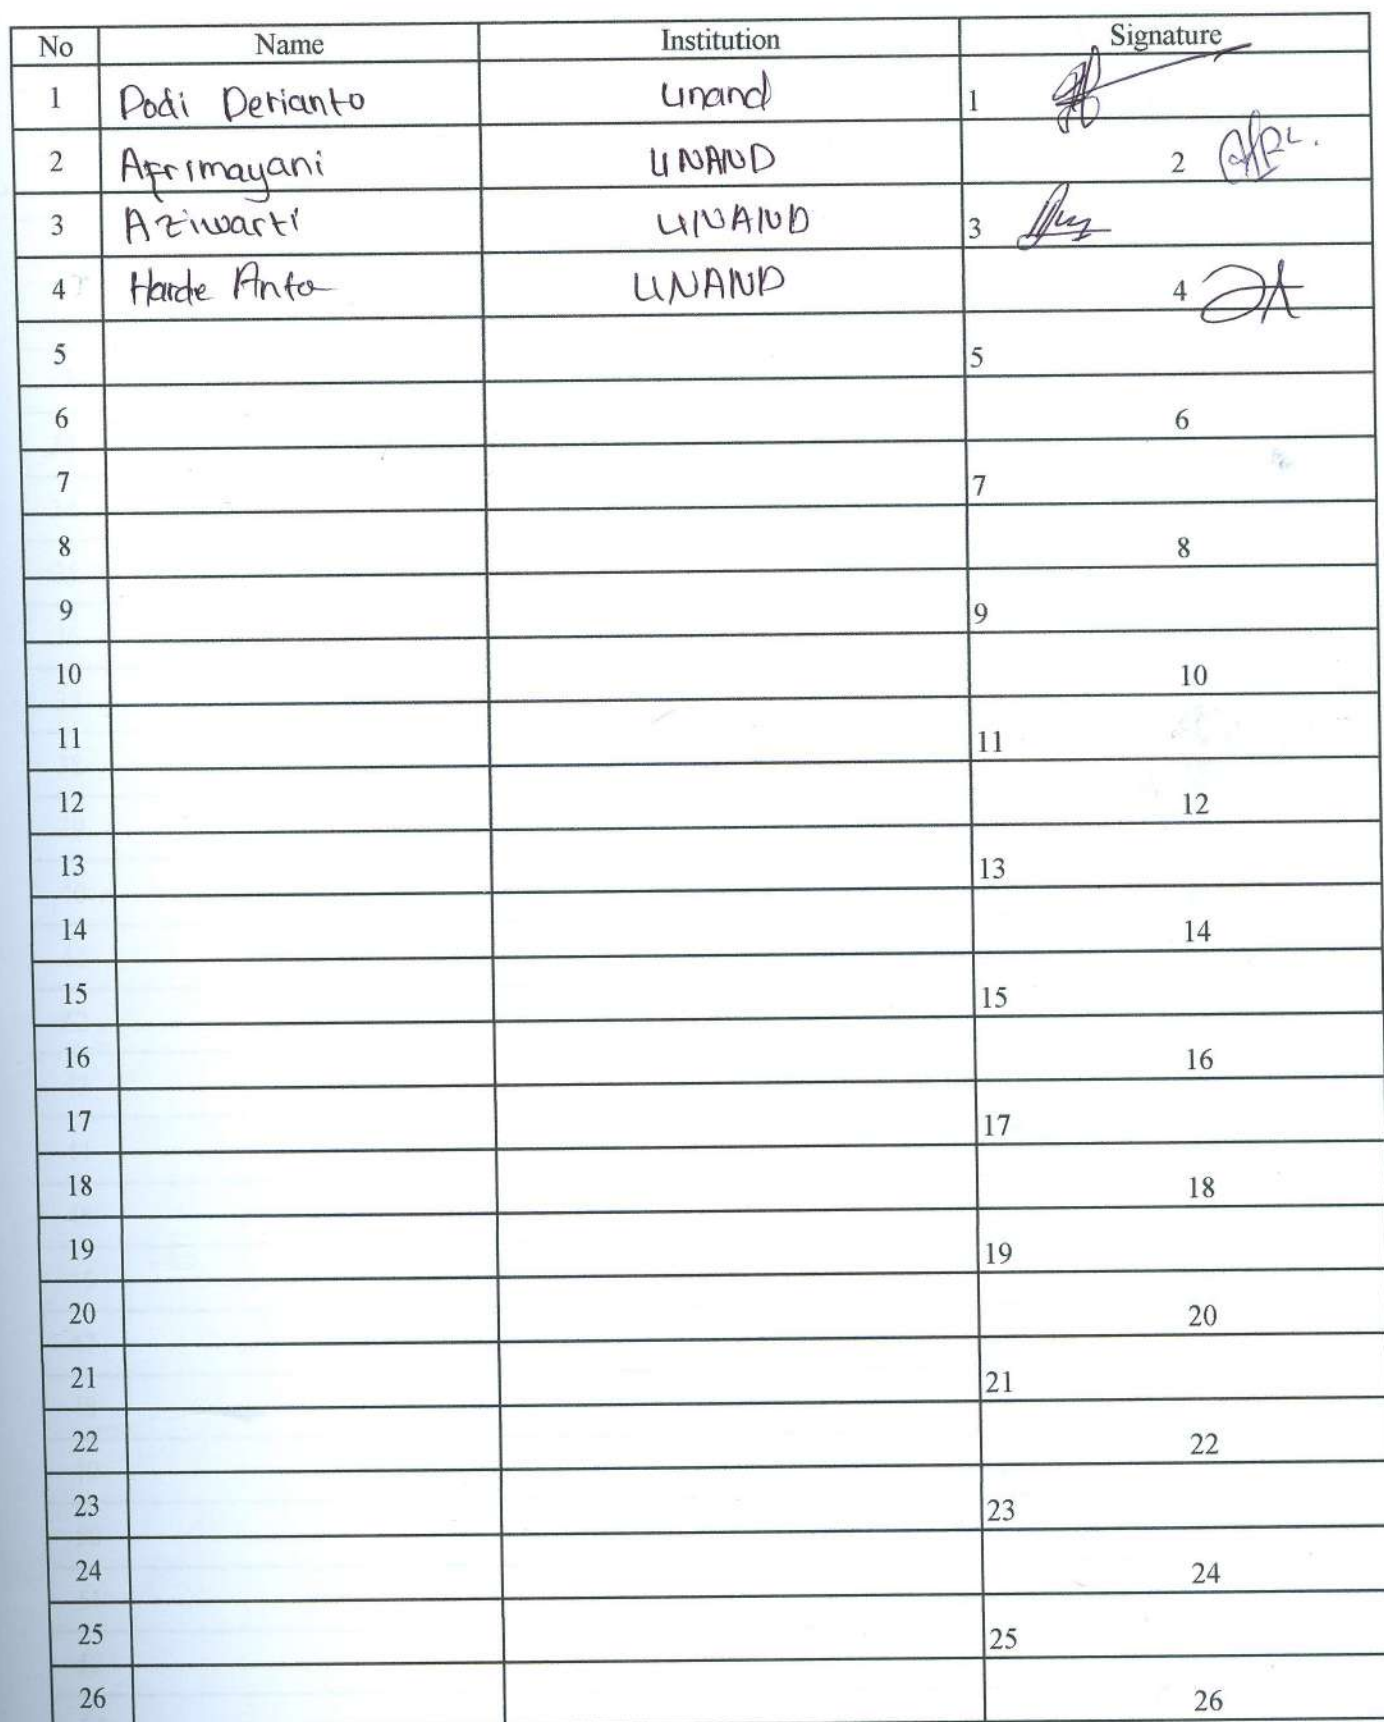 No Name Institution Signature
1 Dodi Derianto Unand 1
2 Afrimayani UNAND 2
3 Aziwarti UNAND 3
4 Harde Anto UNAND 4
5 5
6 6
7 7
8 8
9 9
10 10
11 11
12 12
13 13
14 14
15 15
16 16
17 17
18 18
19 19
20 20
21 21
22 22
23 23
24 24
25 25
26 26